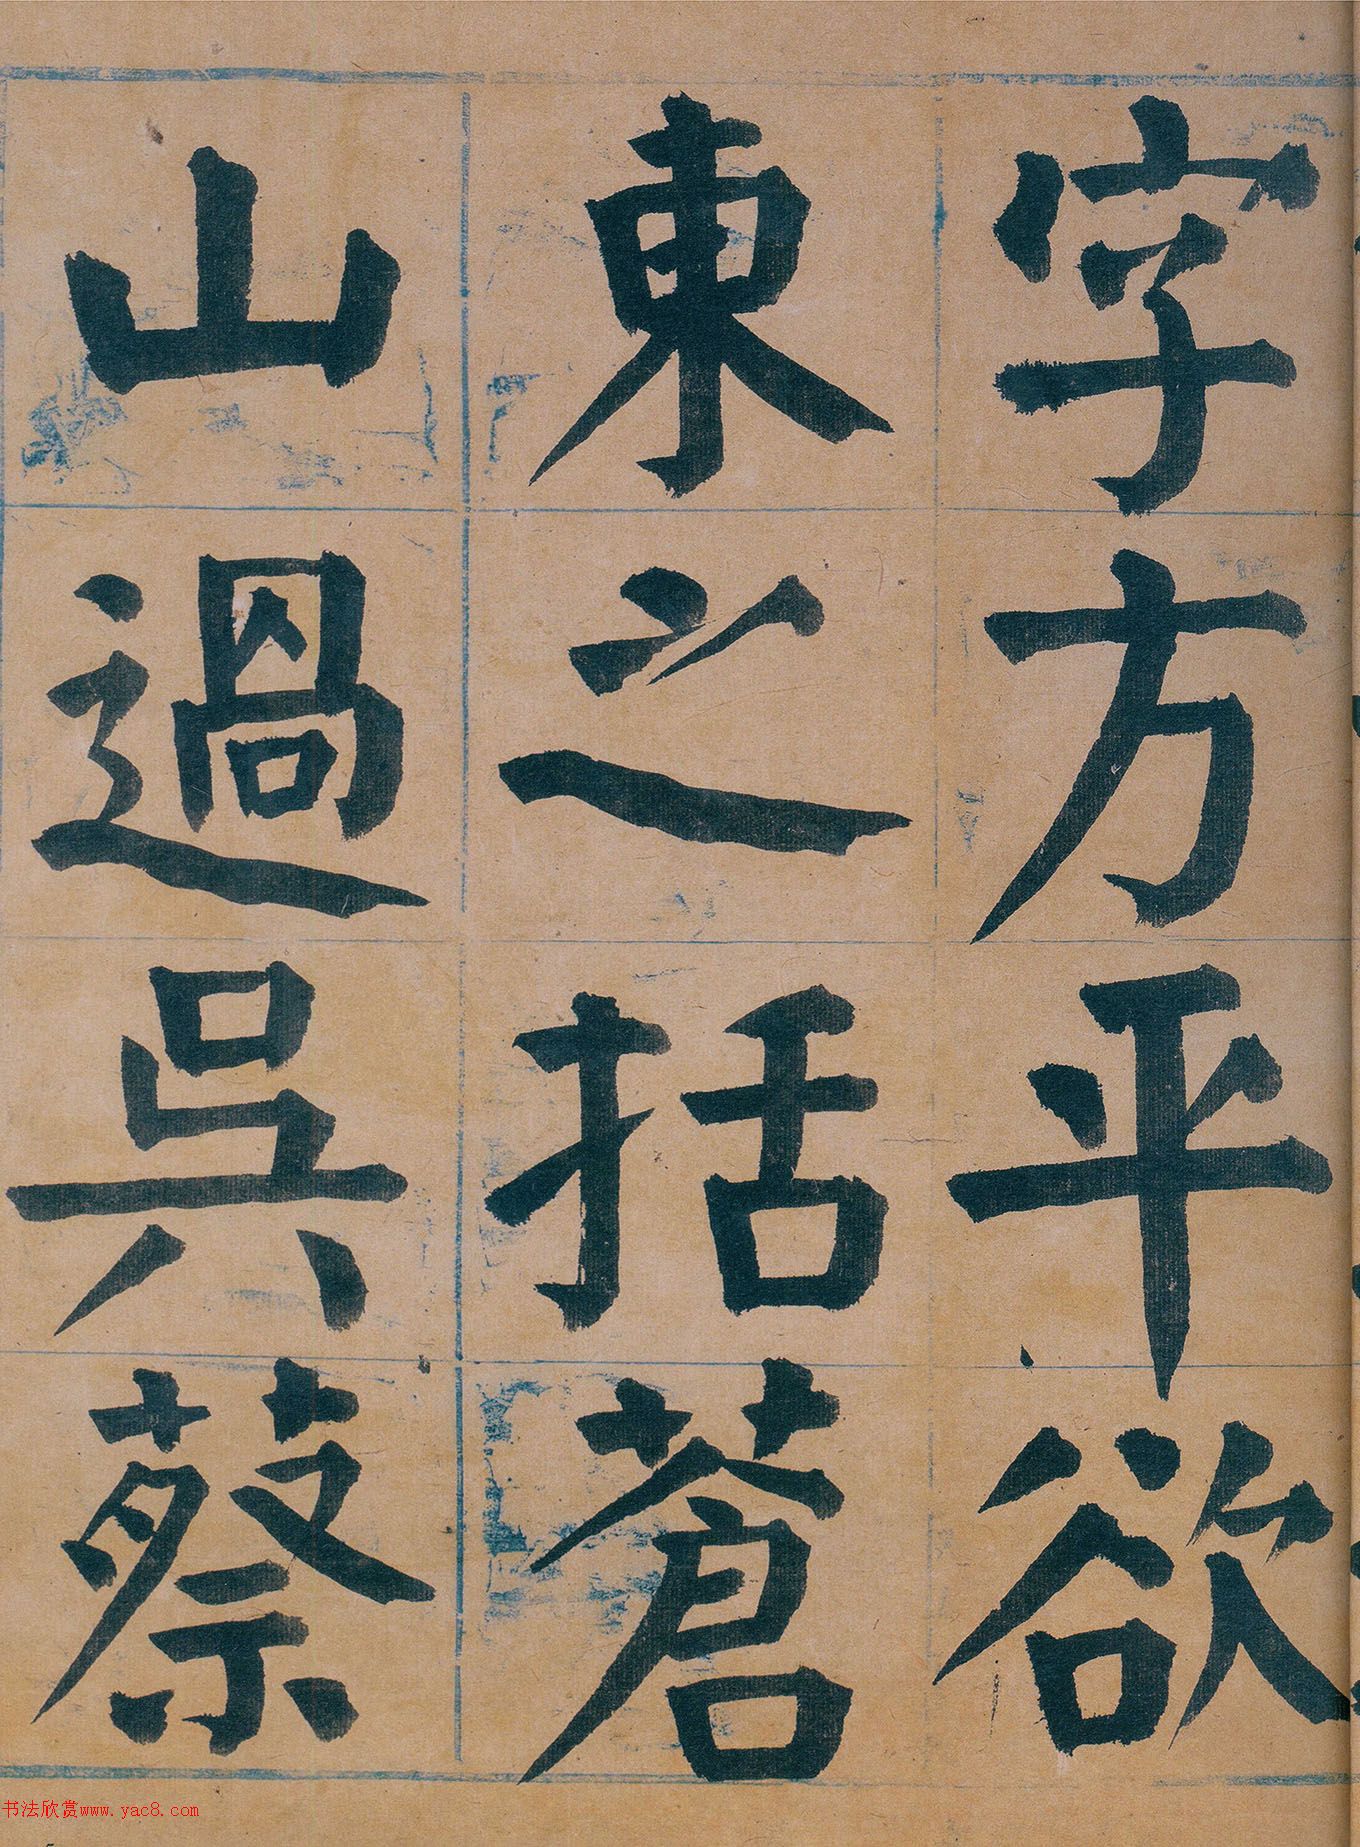 字方平欲
東之括蒼
山過吳蔡
书法欣赏www.yac8.com